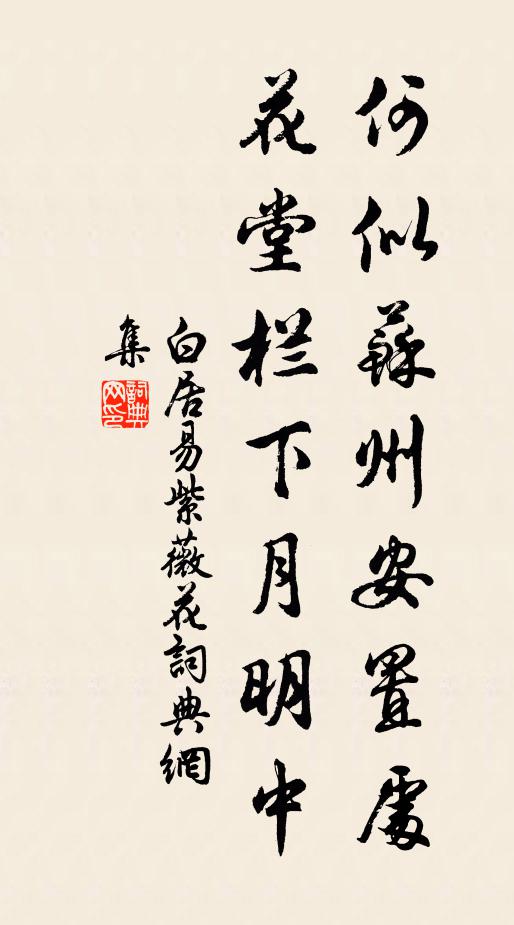 何似蘇州安置處
花堂栏下月明中
白居易紫薇花詞典網
集
詞典網印